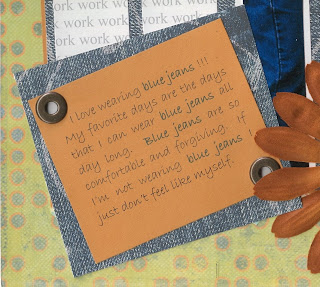 work work work work
work work work work
work work work work
I love wearing blue jeans !!!
My favorite days are the days
that I can wear blue jeans all
day long. Blue jeans are so
comfortable and forgiving. If
I'm not wearing blue jeans I
just don't feel like myself.